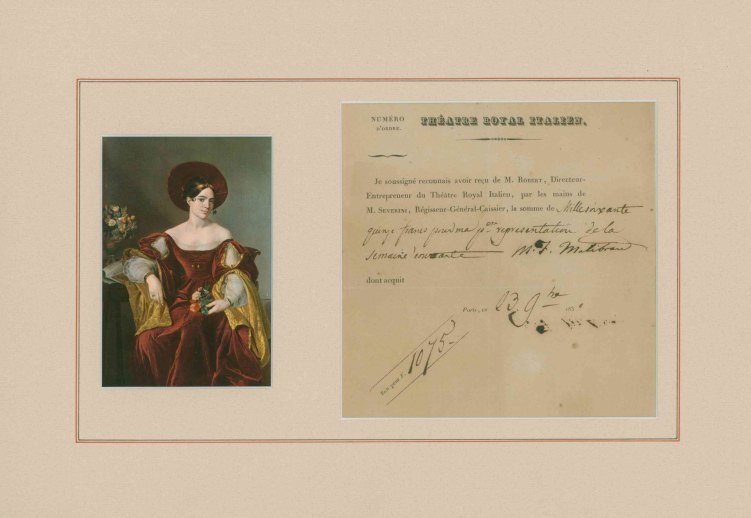 NUMÉRO
D'ORDRE.
THÉATRE ROYAL ITALIEN.
Je soussigné reconnais avoir reçu de M. ROBERT, Directeur-
Entrepreneur du Théâtre Royal Italien, par les mains de
M. SEVERINI, Régisseur-Général-Caissier, la somme de Mille soixante
quinze francs pour ma 1ère représentation de la
semaine courante M. F. Malibran
dont acquit
Paris, le 23 9bre 1830
Bon pour F. 1075